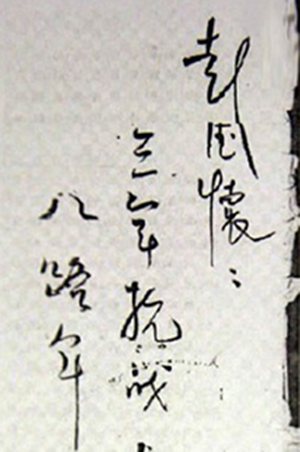 彭德懷：
三年抗战
八路军